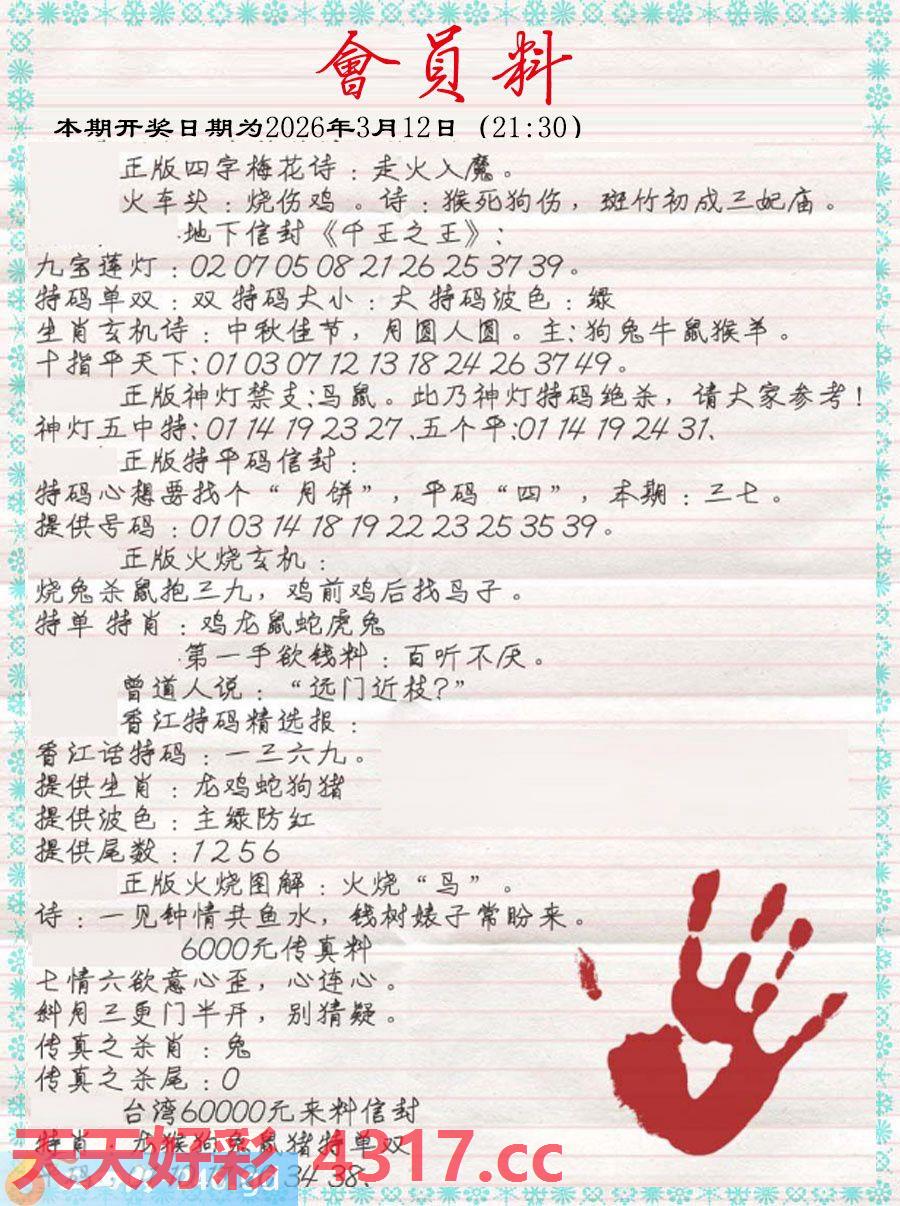 會員料
本期开奖日期为2026年3月12日（21:30）
正版四字梅花诗：走火入魔。
火车头：烧伤鸡 。诗：猴死狗伤，斑竹初成三妃庙。
地下信封《千王之王》：
九宝莲灯：02 07 05 08 21 26 25 37 39。
特码单双：双 特码大小：大 特码波色：绿
生肖玄机诗：中秋佳节，月圆人圆。主：狗兔牛鼠猴羊。
十指平天下：01 03 07 12 13 18 24 26 37 49。
正版神灯禁支：鸟鼠。此乃神灯特码绝杀，请大家参考！
神灯五中特：01 14 19 23 27、五个平：01 14 19 24 31、
正版特平码信封：
特码心想要找个“月饼”，平码“四”，本期：三七。
提供号码：01 03 14 18 19 22 23 25 35 39。
正版火烧玄机：
烧兔杀鼠抱三九，鸡前鸡后找鸟子。
特单 特肖：鸡龙鼠蛇虎兔
第一手欲钱料：百听不厌。
曾道人说：“远门近枝？”
香江特码精选报：
香江话特码：一三六九。
提供生肖：龙鸡蛇狗猪
提供波色：主绿防红
提供尾数：1 2 5 6
正版火烧图解：火烧“鸟”。
诗：一见钟情共鱼水，钱树婊子常盼来。
6000元传真料
七情六欲意心歪，心连心。
斜月三更门半开，别猜疑。
传真之杀肖：兔
传真之杀尾：0
台湾60000元来料信封
特肖：龙猴狗兔鼠猪特单双
34 38、
天天好彩 4317.cc